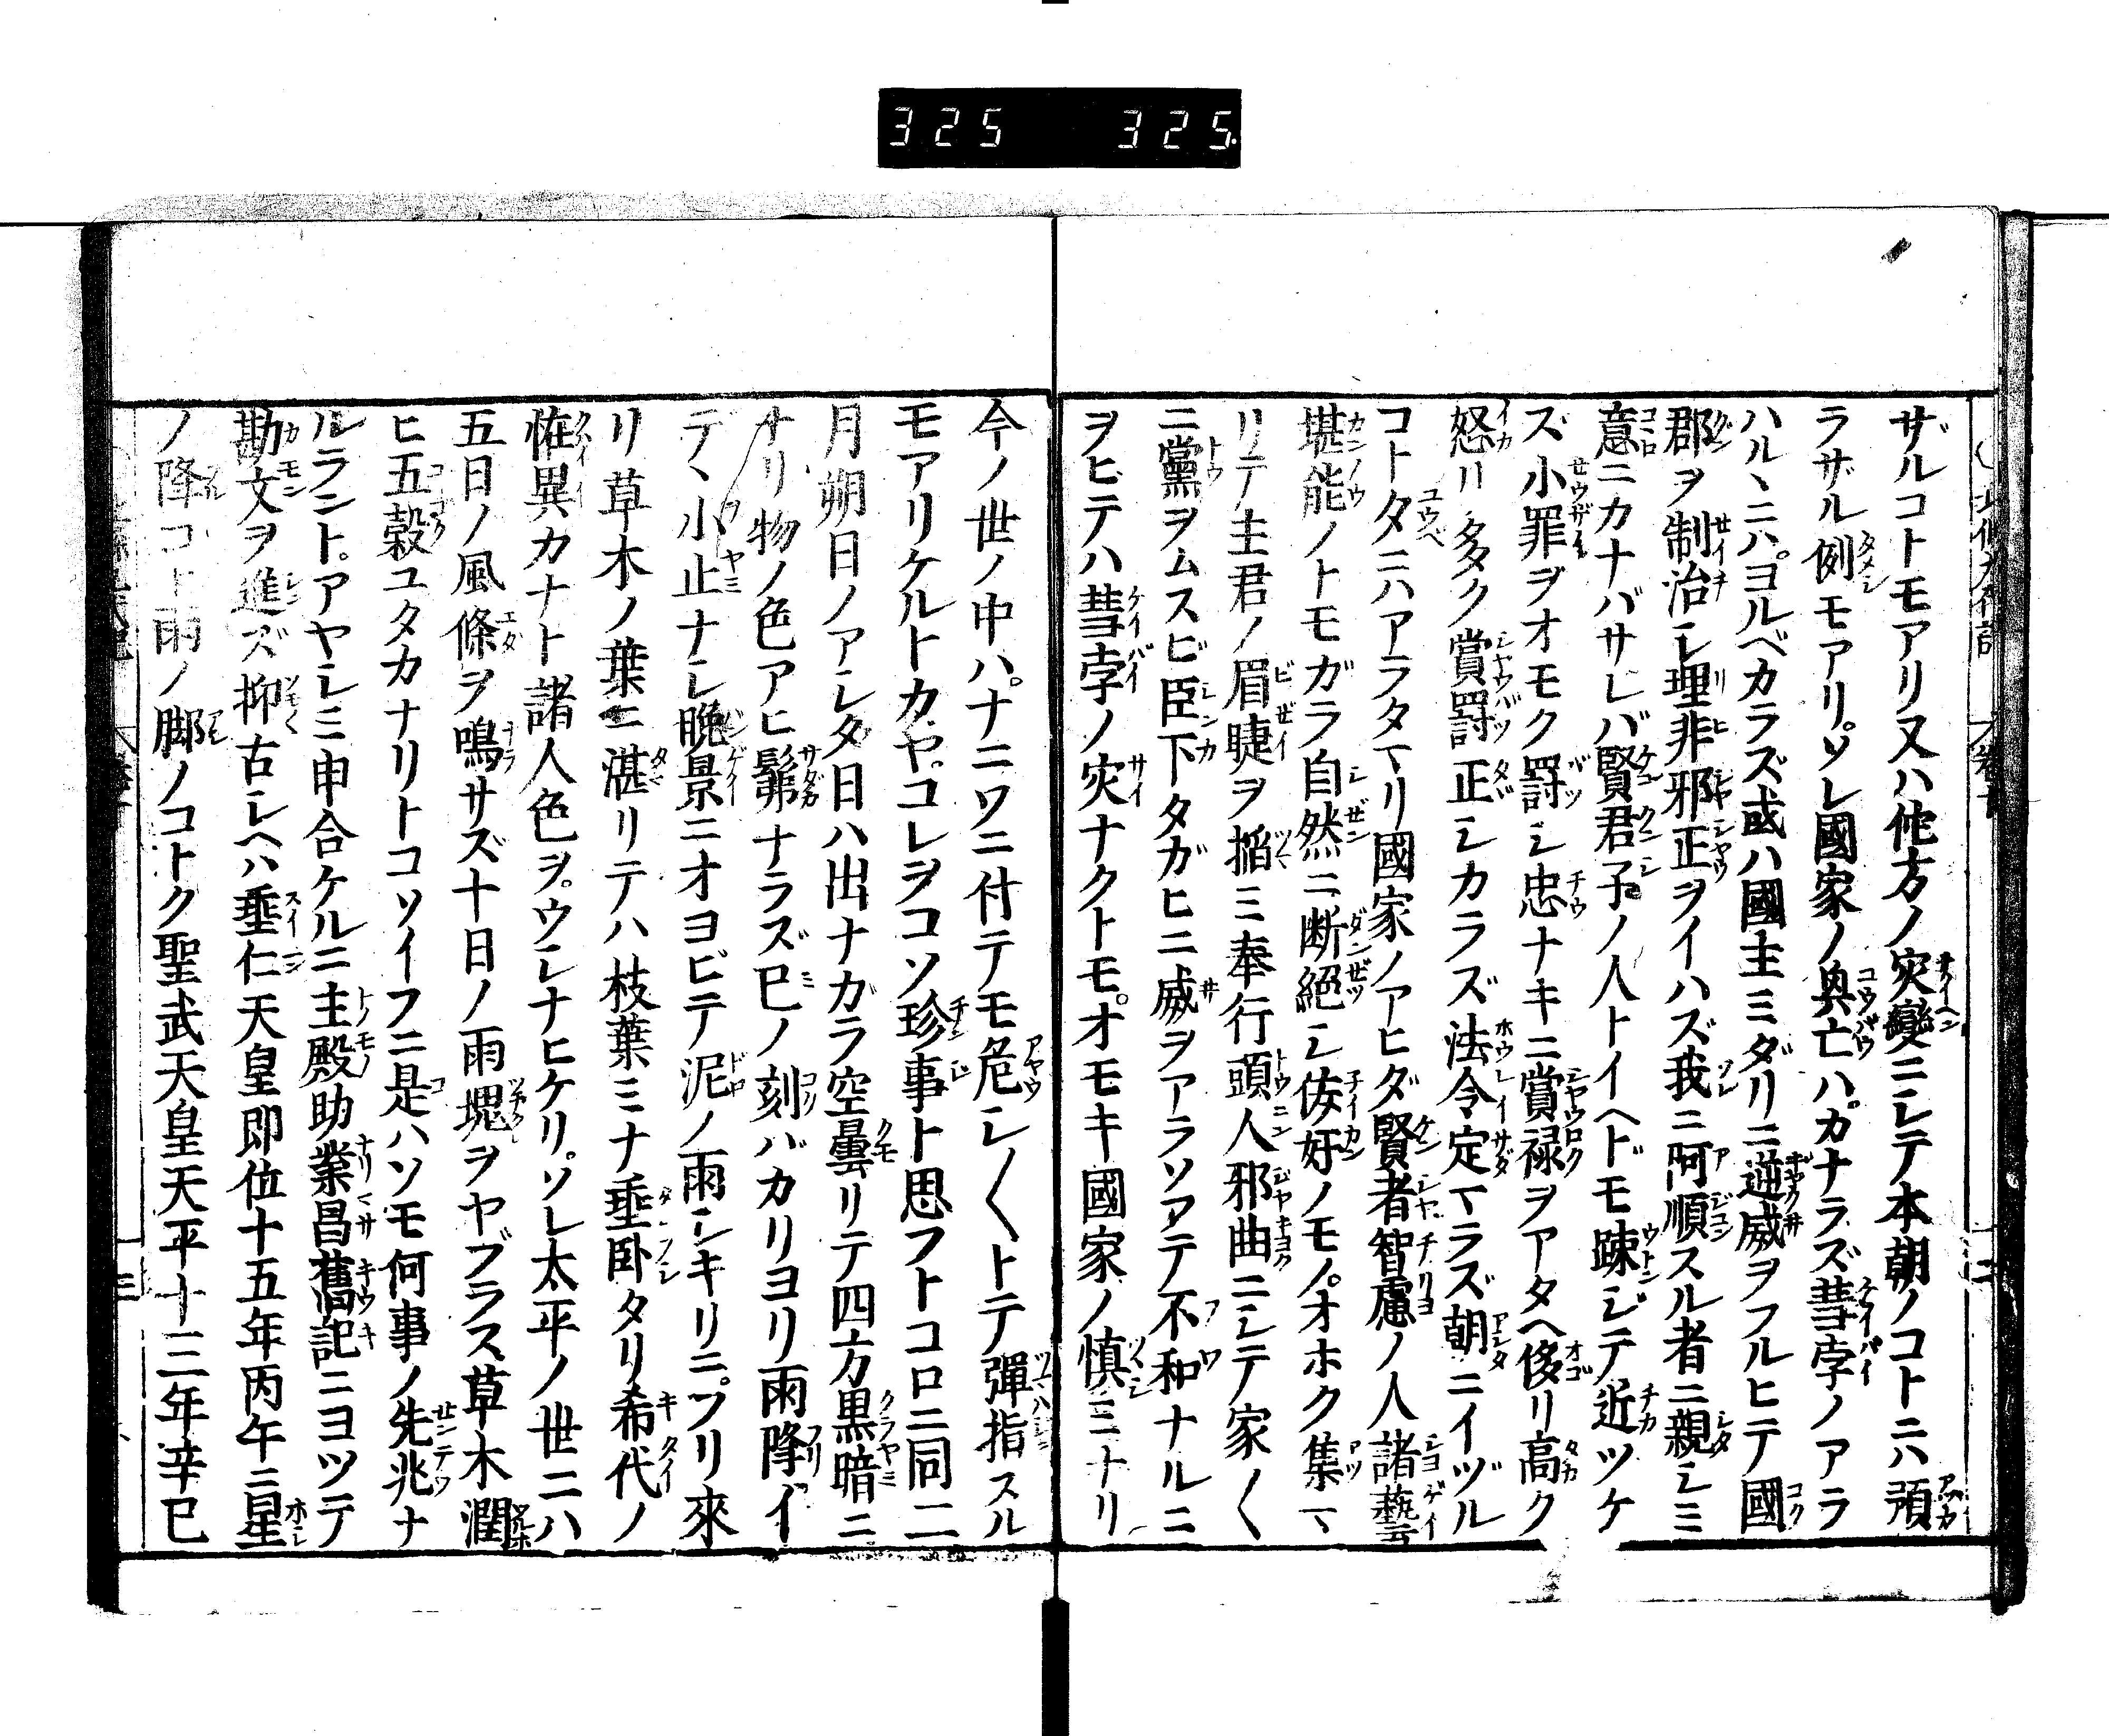 325 325
ザルコトモアリ又ハ他方ノ灾變ニシテ本朝ノコトニハ預
ラザル例モアリ。ソレ國家ノ興亡ハ。カナラズ彗孛ノアラ
ハルヽニハ。ヨルベカラズ或ハ國主ミダリニ逆威ヲフルヒテ國
郡ヲ制治シ理非邪正ヲイハズ我ニ阿順スル者ニ親シミ
意ニカナハザレバ賢君子ノ人トイヘドモ疎ジテ近ツケ
ズ小罪ヲオモク罸シ忠ナキニ賞禄ヲアタヘ侈リ高ク
怒リ多ク賞罸正シカラズ法令定マラズ朝ニイヅル
コトタニハアラタマリ國家ノアヒダ賢者智慮ノ人諸藝
堪能ノトモガラ自然ニ断絕シ佞奸ノモノ。オホク集マ
リテ主君ノ眉睫ヲ搯ミ奉行頭人邪曲ニシテ家〱
ニ黨ヲムスビ臣下タガヒニ威ヲアラソアテ不和ナルニ
ヲヒテハ彗孛ノ灾ナクトモ。オモキ國家ノ慎ミナリ
今ノ世ノ中ハ。ナニワニ付テモ危シ〱トテ彈指スル
モアリケルトカヤ。コレヲコソ珍事ト思フトコロニ同二
月朔日ノアシタ日ハ出ナガラ空曇リテ四方黒暗ニ
ナリ物ノ色アヒ髴ナラズ巳ノ刻バカリヨリ雨降イ
デヽ小止ナシ晩景ニオヨビテ泥ノ雨シキリニ。フリ來
リ草木ノ葉ニ湛リテハ枝葉ミナ垂卧タリ希代ノ
恠異カナト諸人色ヲ。ウシナヒケリ。ソレ太平ノ世ニハ
五日ノ風條ヲ鳴サズ十日ノ雨塊ヲヤブラス草木潤
ヒ五穀ユタカナリトコソイフニ是ハソモ何事ノ先兆ナ
ルラント。アヤシミ申合ケルニ主殿助業昌舊記ニヨツテ
勘文ヲ進ズ抑古シヘハ垂仁天皇即位十五年丙午ニ星
ノ降コト雨ノ脚ノコトク聖武天皇天平十三年辛巳
三